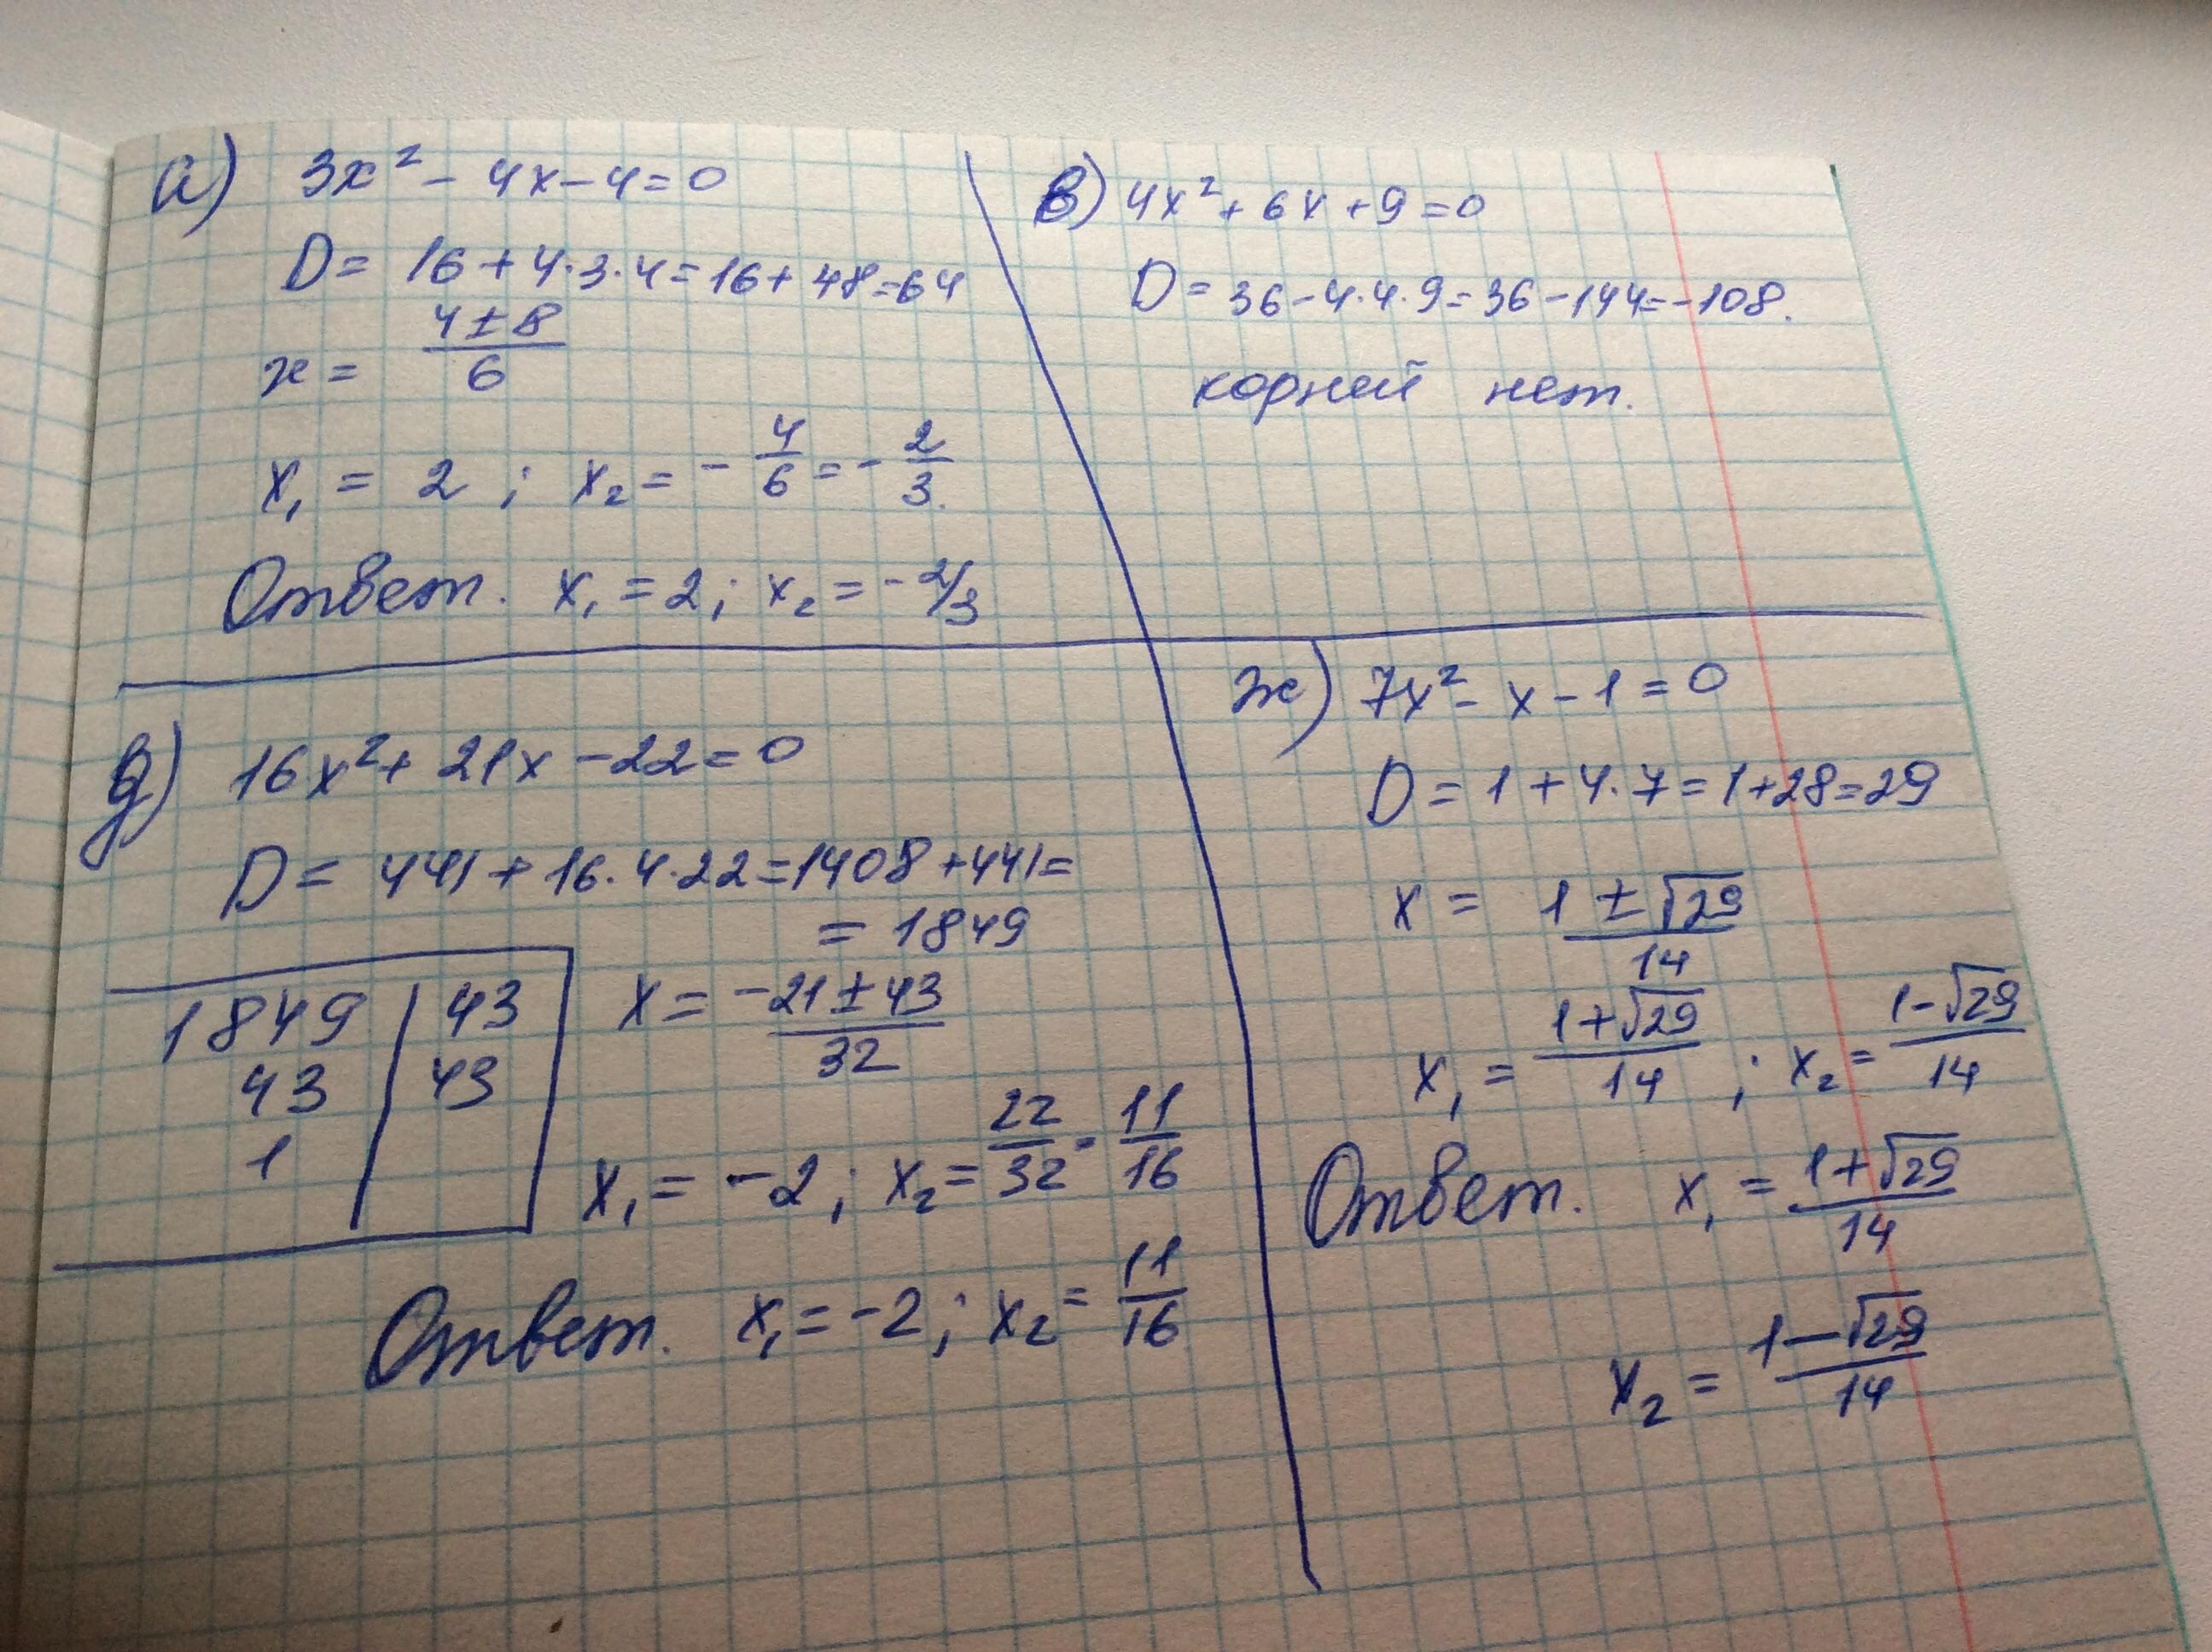 а) 3x² - 4x - 4 = 0
D = 16 + 4·3·4 = 16 + 48 = 64
x = (4 ± 8)/6
x₁ = 2 ; x₂ = - 4/6 = - 2/3.
Ответ. x₁ = 2 ; x₂ = -2/3
в) 4x² + 6x + 9 = 0
D = 36 - 4·4·9 = 36 - 144 = -108.
корней нет.
д) 16x² + 21x - 22 = 0
D = 441 + 16·4·22 = 1408 + 441 =
= 1849
1849 | 43
43 | 43
1
x = (-21 ± 43)/32
x₁ = -2 ; x₂ = 22/32 = 11/16
Ответ. x₁ = -2 ; x₂ = 11/16
ж) 7x² - x - 1 = 0
D = 1 + 4·7 = 1 + 28 = 29
x = (1 ± √29)/14
x₁ = (1 + √29)/14 ; x₂ = (1 - √29)/14
Ответ. x₁ = (1 + √29)/14
x₂ = (1 - √29)/14